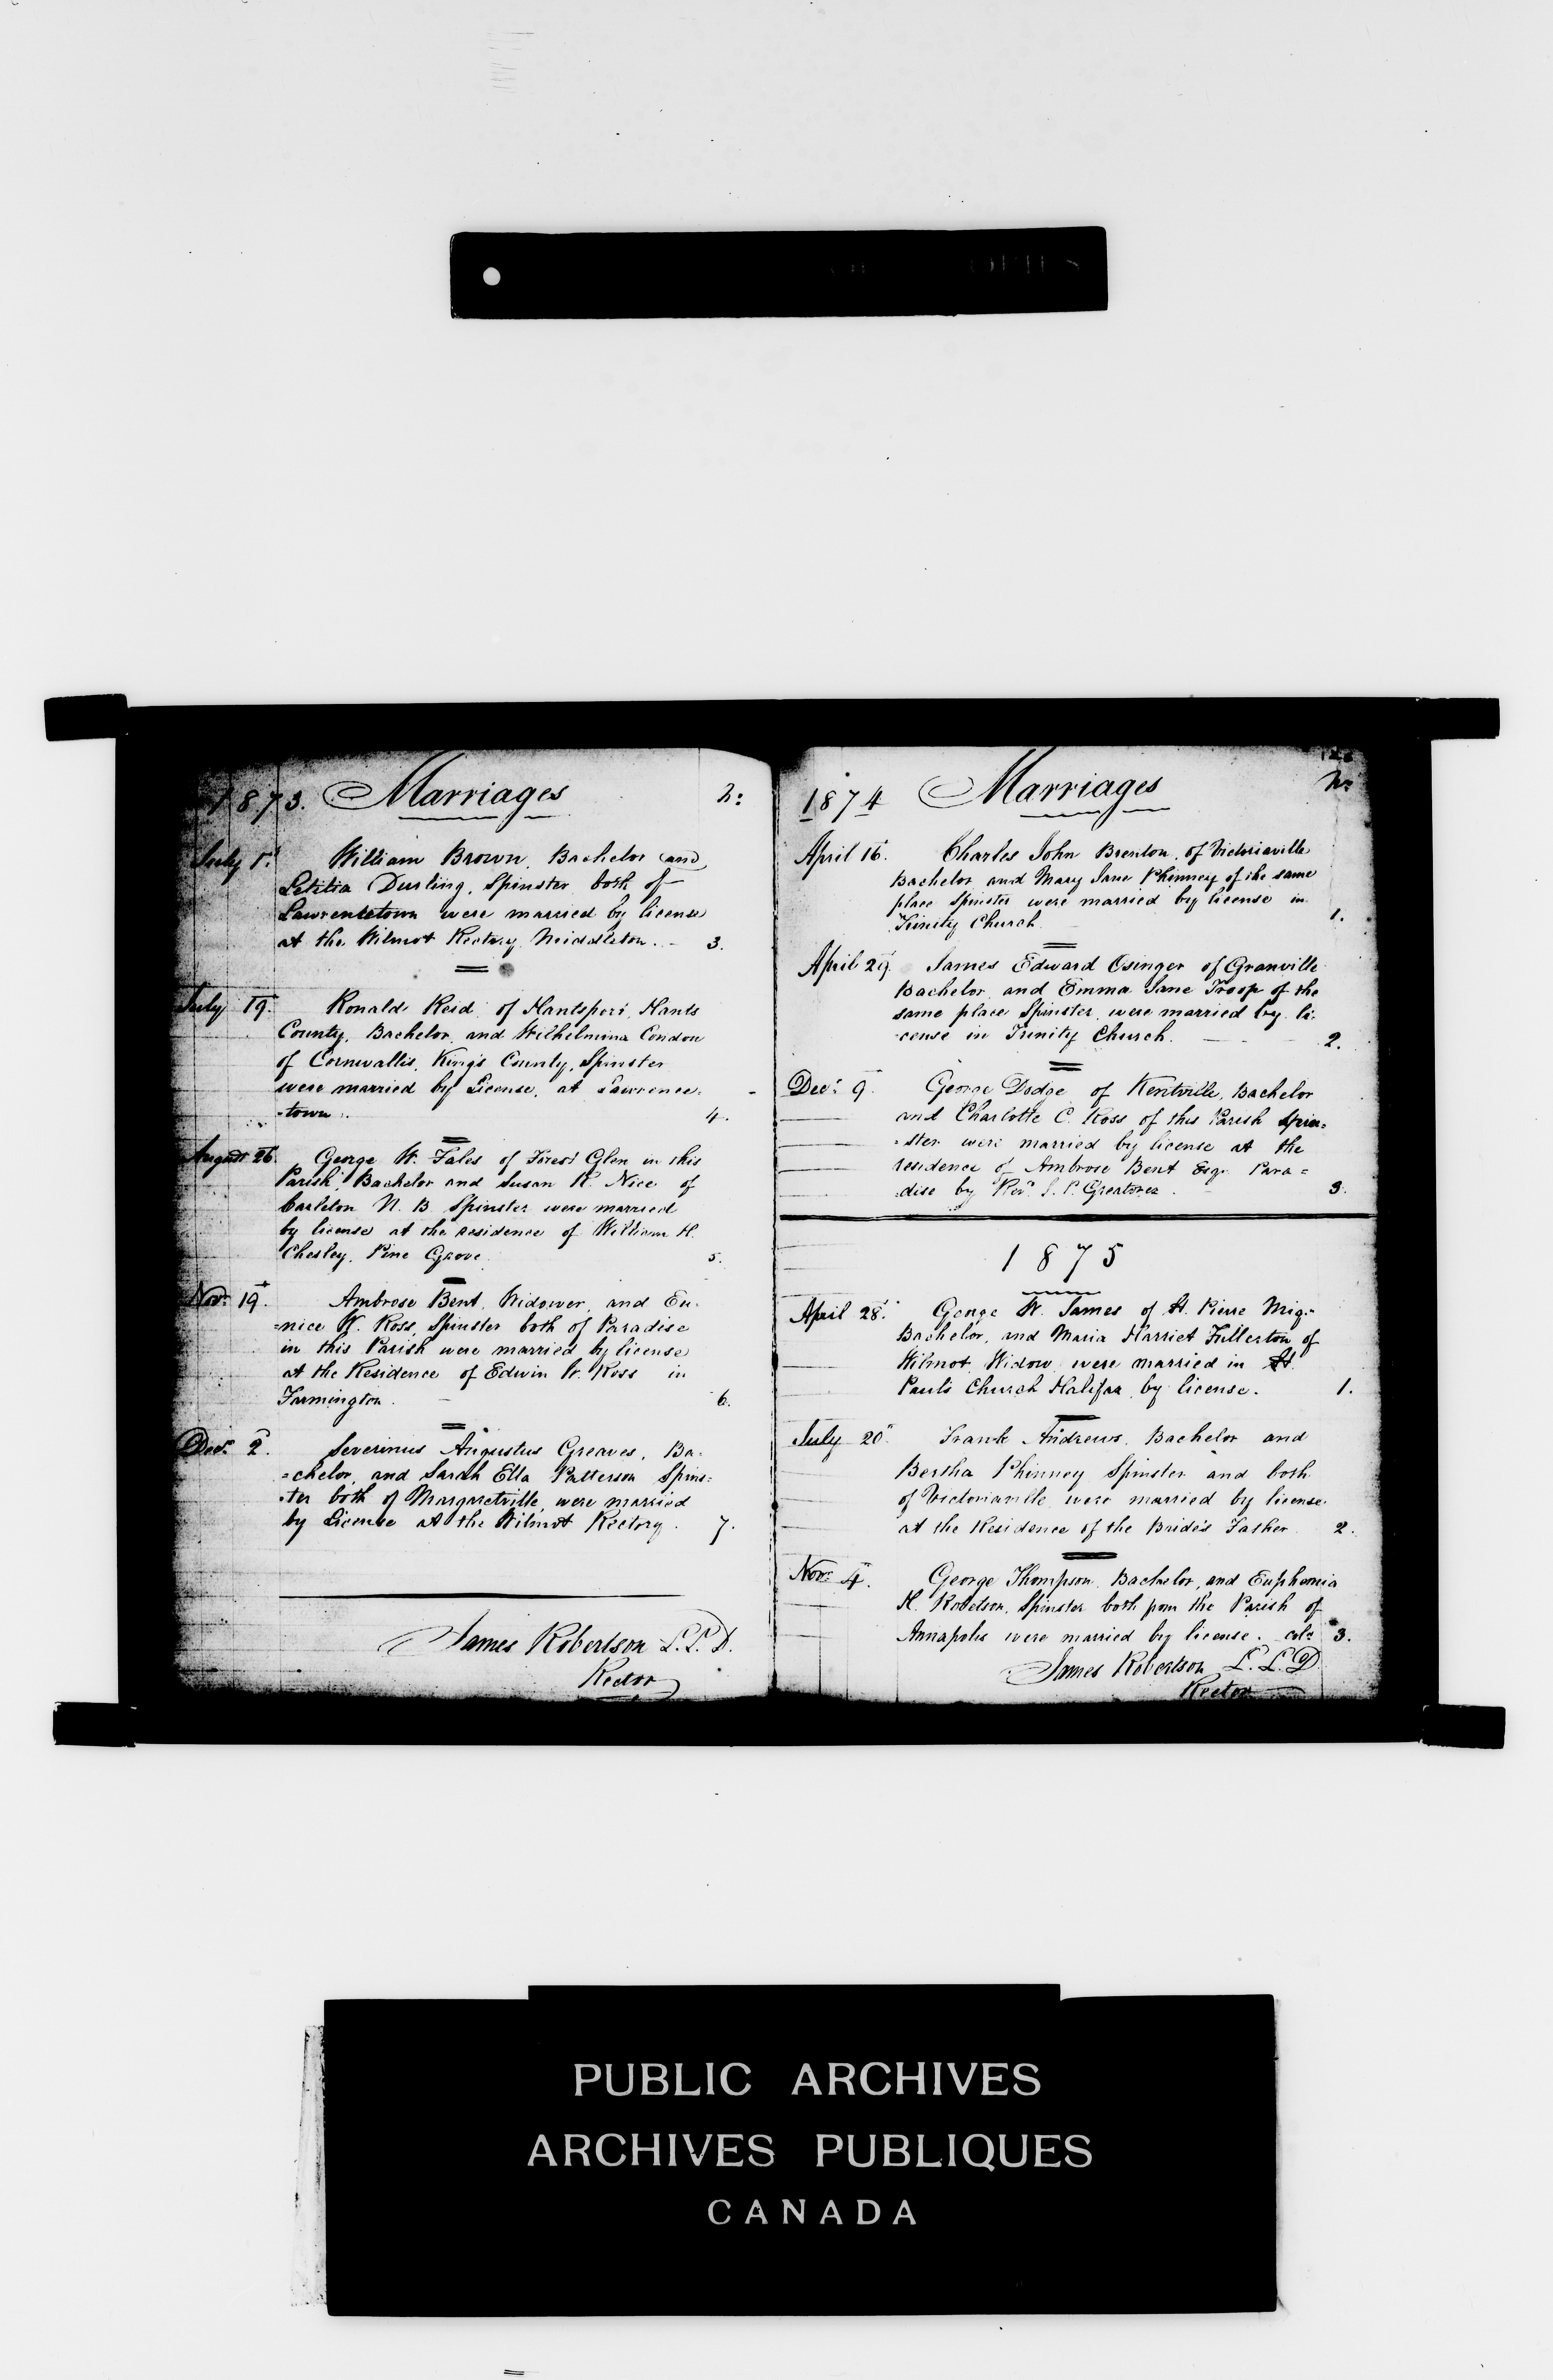 1873. Marriages No
July 1st William Brown, Bachelor and
Letitia Durling, Spinster both of
Lawrencetown were married by license
at the Wilmot Rectory Middleton. 3.
July 19. Ronald Reid of Hantsport, Hants
County, Bachelor, and Wilhelmina Condon
of Cornwallis, King's County, Spinster
were married by License, at Lawrence-
-town. 4.
August 26. George W. Fales of Forest Glen in this
Parish, Bachelor and Susan R. Nice of
Carleton N. B. Spinster were married
by license at the residence of William H.
Chesley, Pine Grove. 5.
Nov. 19. Ambrose Bent, Widower, and Eu-
=nice W. Ross, Spinster both of Paradise
in this Parish were married by license
at the Residence of Edwin W. Ross in
Farmington. 6.
Dec. 2. Severinus Augustus Greaves, Ba-
=chelor, and Sarah Etta Patterson Spins=
-ter both of Margaretville, were married
by License at the Wilmot Rectory. 7.
James Robertson L.L.D.
Rector
1874 Marriages No
April 16. Charles John Brenton, of Victoriaville
Bachelor and Mary Jane Phinney of the same
place Spinster were married by license in
Trinity Church 1.
April 29. James Edward Osinger of Granville
Bachelor and Emma Jane Troop of the
same place Spinster, were married by li-
-cense in Trinity Church. 2.
Dec. 9. George Dodge of Kentville, Bachelor
and Charlotte C. Ross of this Parish Spin=
-ster were married by license at the
residence of Ambrose Bent Esqr. Para=
-dise by Revd. J. P. Greatorex. 3.
1875
April 28. George W. James of St. Pierre Miq.=
Bachelor, and Maria Harriet Fullerton of
Wilmot Widow were married in St.
Paul's Church Halifax by license. 1.
July 20. Frank Andrews, Bachelor and
Bertha Phinney Spinster and both
of Victoriaville were married by license
at the Residence of the Bride's Father 2.
Nov. 4. George Thompson, Bachelor, and Euphemia
H. Robetson, Spinster both from the Parish of
Annapolis were married by license. 3.
James Robertson L.L.D
Rector
PUBLIC ARCHIVES
ARCHIVES PUBLIQUES
CANADA